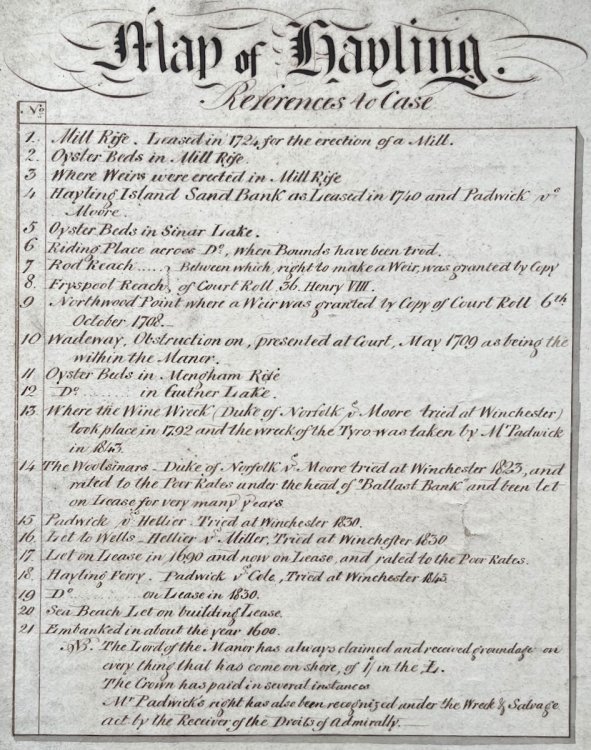 Map of Hayling.
References to Case
No
1. Mill Rife. Leased in 1724 for the erection of a Mill.
2. Oyster Beds in Mill Rife.
3 Where Weirs were erected in Mill Rife
4 Hayling Island Sand Bank as Leased in 1740 and Padwick vs
Moore.
5 Oyster Beds in Sinar Lake.
6 Riding Place across Do, when Bounds have been trod.
7 Rod Reach ..... } Between which, right to make a Weir, was granted by Copy
8. Fryspool Reach } of Court Roll 36. Henry VIII.
9 Northwood Point where a Weir was granted by Copy of Court Roll 6th
October 1708.—
10 Wadeway, Obstruction on, presented at Court, May 1709 as being the
within the Manor.
11 Oyster Beds in Mengham Rife
12 Do ......... in Gutner Lake.
13 Where the Wine Wreck (Duke of Norfolk vs Moore tried at Winchester)
took place in 1792 and the wreck of the Tyro was taken by Mr Padwick
in 1843.
14 The Woolsinars - Duke of Norfolk vs Moore tried at Winchester 1823, and
rated to the Poor Rates under the head of "Ballast Bank" and been Let
on Lease for very many years
15 Padwick vs Hellier. Tried at Winchester 1830.
16. Let to Wells - Hellier vs Miller, Tried at Winchester 1830
17. Let on Lease in 1690 and now on Lease, and rated to the Poor Rates.
18. Hayling Ferry. Padwick vs Cole, Tried at Winchester 1843
19 Do ............ on Lease in 1830.
20 Sea Beach Let on building Lease.
21 Embanked in about the year 1600.
NB. The Lord of the Manor has always claimed and received groundage on
every thing that has come on shore, of 1/ in the £.
The Crown has paid in several instances
Mr Padwick's right has also been recognized under the Wreck & Salvage
act by the Receiver of the Droits of Admirally.—